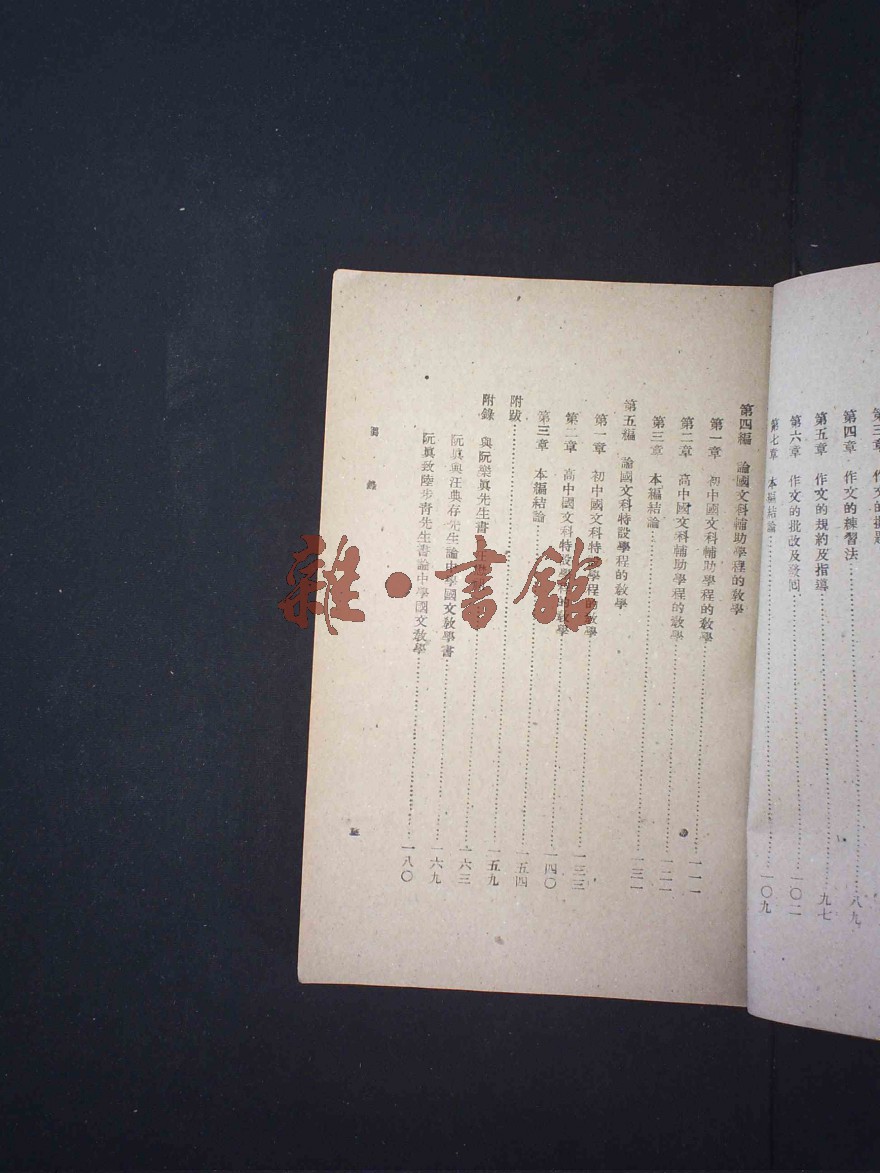 第三章 作文的擬題
第四章 作文的練習法……八九
第五章 作文的規約及指導……九七
第六章 作文的批改及發回……一〇二
第七章 本編結論……一〇九
第四編 論國文科輔助學程的敎學
第一章 初中國文科輔助學程的敎學……一一一
第二章 高中國文科輔助學程的敎學……一二一
第三章 本編結論……一三一
第五編 論國文科特設學程的敎學
第一章 初中國文科特設學程的敎學……一三三
第二章 高中國文科特設學程的敎學……一四〇
第三章 本編結論……一五四
附跋……一五九
附錄 與阮樂眞先生書……一六三
阮眞與汪典存先生論中學國文敎學書……一六九
阮眞致陸步青先生書論中學國文敎學……一八〇
目錄
雜·書館